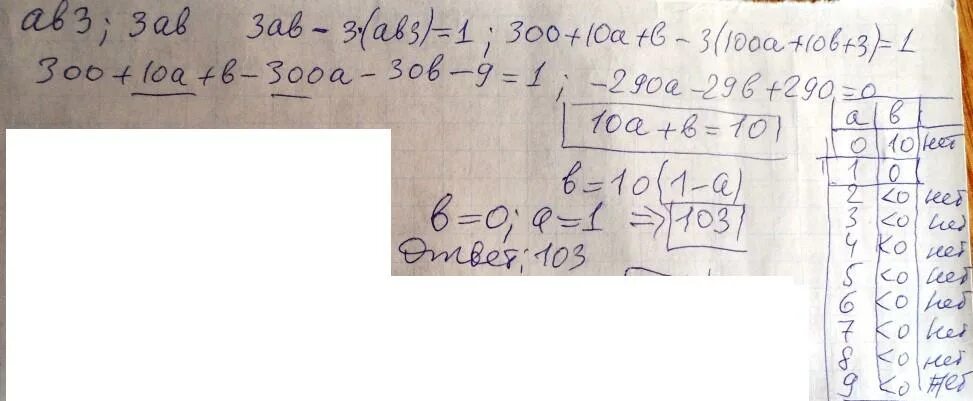 ав3; 3ав 3ав - 3·(ав3)=1; 300+10а+в-3(100а+10в+3)=1
300+10а+в-300а-30в-9=1; -290а-29в+290=0
10а+в=10
в=10(1-а)
в=0; а=1 ⇒ 103
Ответ: 103
а в
0 10 нет
1 0
2 <0 нет
3 <0 нет
4 <0 нет
5 <0 нет
6 <0 нет
7 <0 нет
8 <0 нет
9 <0 нет